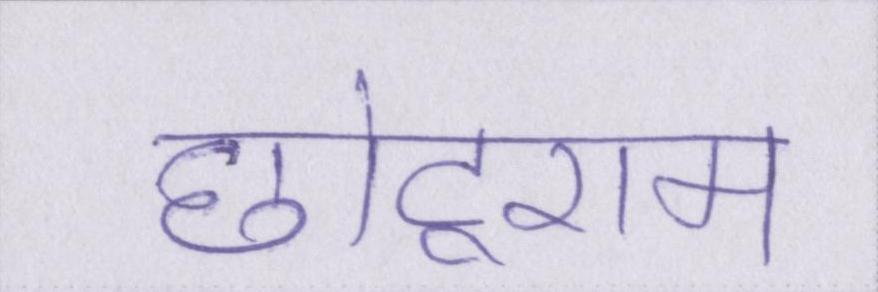 छोटूराम